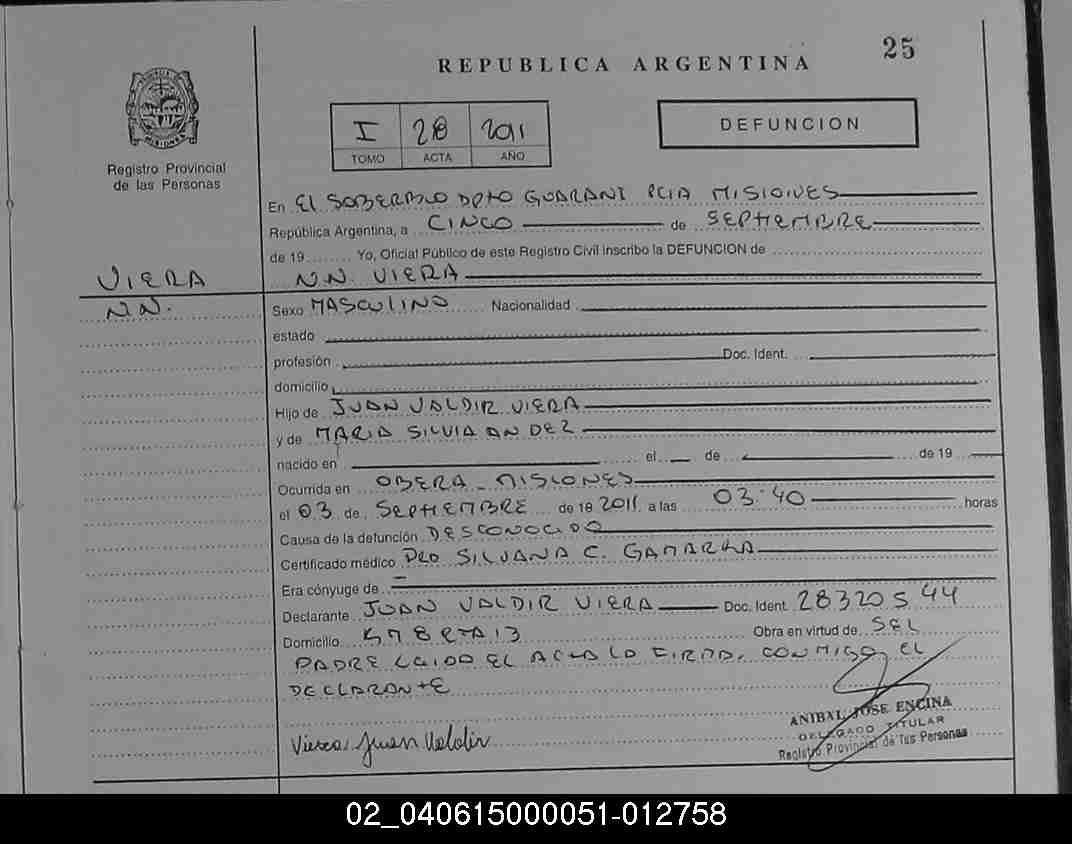 25
REPUBLICA ARGENTINA
I 28 2011
TOMO ACTA AÑO
DEFUNCION
Registro Provincial
de las Personas
En El SOBERBIO DPTO GUARANI PCIA MISIONES
República Argentina, a CINCO de SEPTIEMBRE
de 19 Yo, Oficial Público de este Registro Civil inscribo la DEFUNCION de
VIERA
N.N. VIERA
N.N.
Sexo MASCULINO Nacionalidad
estado
profesión Doc. Ident.
domicilio
Hijo de JUAN VALDIR VIERA
y de MARIA SILVIA AN DEZ
nacido en el de de 19
Ocurrida en OBERA - MISIONES
el 03 de SEPTIEMBRE de 19 2011 a las 03:40 horas
Causa de la defunción DESCONOCIDO
Certificado médico DRO SILVANA C. GAMARRA
Era cónyuge de
Declarante JUAN VALDIR VIERA Doc. Ident. 28320544
Domicilio KM 8 RTA 13 Obra en virtud de SEL
PADRE LEIDO EL ACTA LO FIRMA, CONMIGO EL
DECLARANTE
Viera Juan Valdir
ANIBAL JOSE ENCINA
DELEGADO TITULAR
Registro Provincial de las Personas
02_040615000051-012758